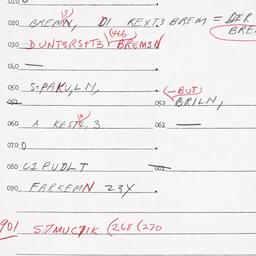 010
020 BREMN, DI REXT3 BREM = DER
(3)
BRE
030 DUNT3RST3 BREMSN
(466
040
050 STPAKU,LN,
(-BUT)
051
052 BRILN,
060 A KEST 3
061
070
080 CIPUDLT
090 FARKEMN Z3X
901 S7MUCTIK (268 (270